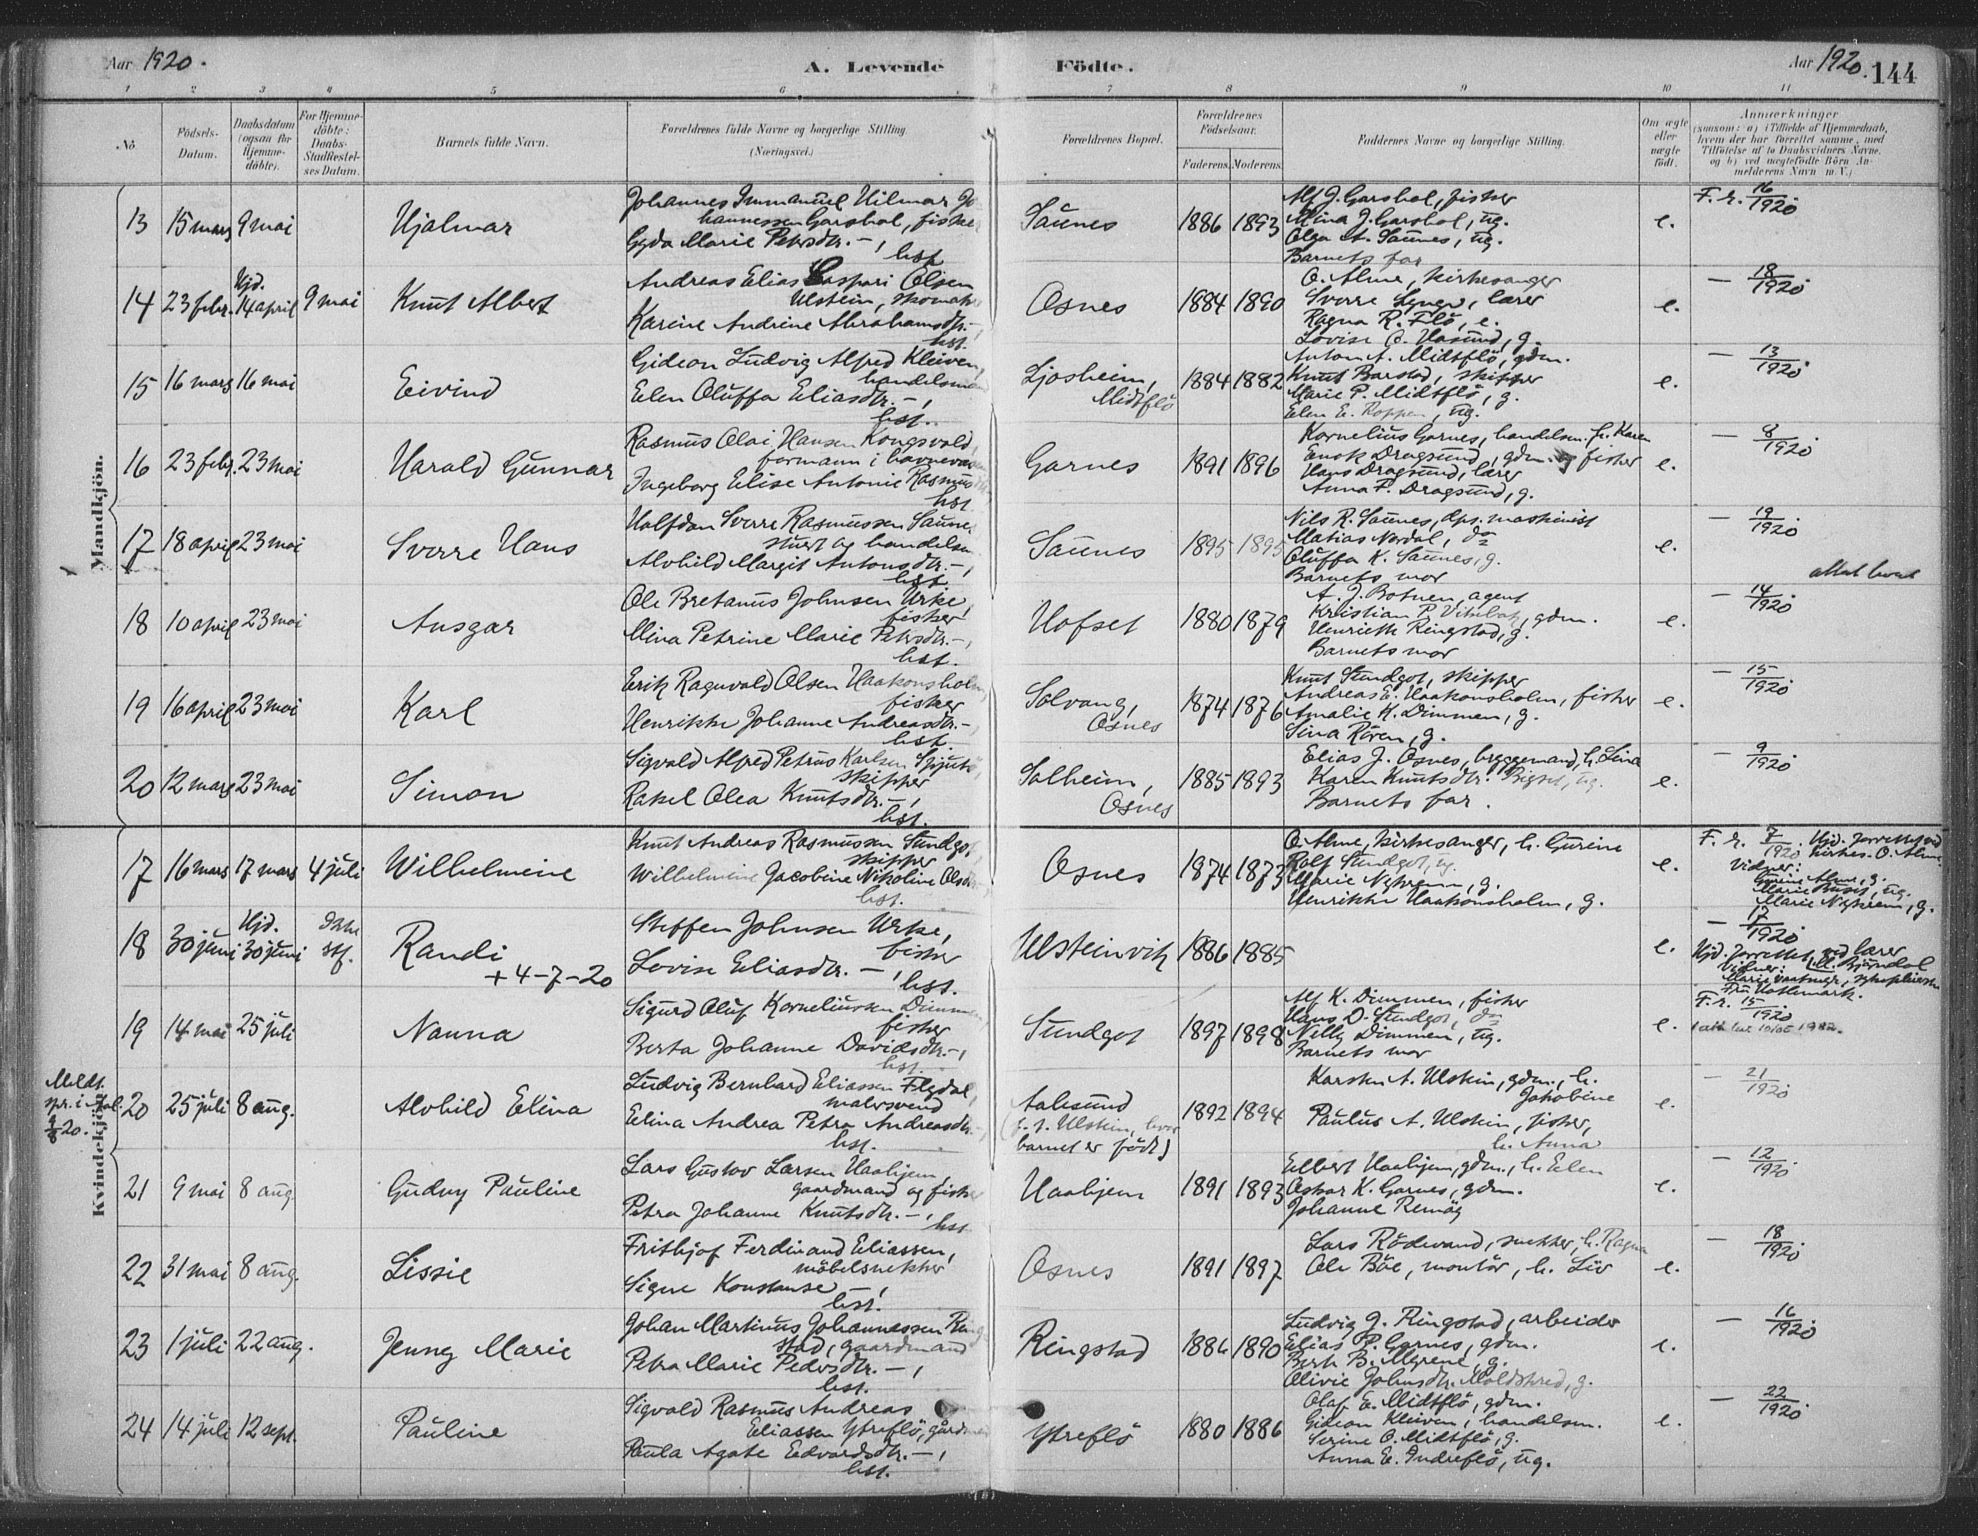 Aar 1920.
A. Levende Födte.
Aar 1920. 144
1 2 3 4 5 6 7 8 9 10 11
No.
Födsels-Datum.
Daabsdatum (ogsaa for Hjemme-döbte).
For Hjemme-döbte: Daabs-Stadfæstel-ses Datum.
Barnets fulde Navn.
Forældrenes fulde Navne og borgerlige Stilling. (Næringsvei.)
Forældrenes Bopæl.
Forældrenes Födselsaar.
Faderens. Moderens.
Faddernes Navne og borgerlige Stilling.
Om ægte eller uægte født.
Anmærkninger
(saasom: a) i Tilfælde af Hjemmedaab, hvem der har forrettet samme, med Tilføielse af to Daabsvidners Navne, og b) ved uægtefödte Börn Anmelderens Navn m. V.)
Mandkjön.
13 15 mars 9 mai Hjalmar
Johannes Immanuel Hilmar Jo
hannessen Garshol, fisker
Gyda Marie Petersdtr. –,
hst.
Saunes 1886 1893
Alf J. Garshol, fisker
Mina J. Garshol, ug.
Olga A. Saunes, ug.
Barnets far
e. F. r. 16/1920
14 23 febr. Hjd. 14 april 9 mai Knut Albert
Andreas Elias Caspari Olsen
Ulstein, skomaker
Karine Andrine Abrahamsdtr. –,
hst.
Osnes 1884 1890
O. Alme, kirkesanger
Sverre Lynge, lærer
Ragna R. Flö, e.
Lovise O. Hasund, g.
e. – 18/1920
15 16 mars 16 mai Eivind
Gideon Ludvig Alfred Kleiven,
handelsmann
Elen Oluffa Eliasdtr. –,
hst.
Ljosheim, Midtflö 1884 1882
Anton A. Midtflö, gdm.
Knut Barstad, skipper
Marie P. Midtflö, g.
Elen E. Roppen, ug.
e. – 13/1920
16 23 febr. 23 mai Harald Gunnar
Rasmus Olai Hansen Kongsvold,
formann i havnevæsen
Ingeborg Elise Antonie Rasmusdtr.
hst.
Garnes 1891 1896
Kornelius Garnes, handelsm. h. Karen
Enok Dragsund, gdm. og fisker
Hans Dragsund, lærer
Anna F. Dragsund, g.
e. – 8/1920
17 18 april 23 mai Sverre Hans
Halfdan Sverre Rasmussen Saunes
stuert og handelsm.
Alvhild Margit Antonsdtr. –,
hst.
Saunes 1895 1895
Nils R. Saunes, dps. maskinist
Matias Nordal, do
Oluffa K. Saunes, g.
Barnets mor
e. – 19/1920
18 10 april 23 mai Ansgar
Ole Bretanus Johnsen Urke,
fisker
Mina Petrine Marie Petersdtr. –,
hst.
Hofset 1880 1879
A. J. Botnen, agent
Kristian P. , gdm.
Henriette Ringstad, g.
Barnets mor
e. – 14/1920
19 16 april 23 mai Karl
Erik Ragnvald Olsen Haakonsholm,
fisker
Henrikke Johanne Andreasdtr. –,
hst.
Solvang, Osnes 1874 1876
Knut Sundgot, skipper
Andreas E. Haakonsholm, fisker
Amalie K. Dimmen, g.
Sina Rören, g.
e. – 15/1920
20 12 mars 23 mai Simon
Sigvald Alfred Petrus Karlsen
skipper
Rakel Olea Knutsdtr. –,
hst.
Solheim, Osnes 1885 1893
Elias J. Osnes, byggemand, h. Lina
Karen Knutsdtr. Bigset, ug.
Barnets far.
e. – 9/1920
Kvindekjön.
17 16 mars 17 mars 4 juli Wilhelmine
Knut Andreas Rasmussen Sundgot,
skipper
Wilhelmine Jacobine Nikoline Olsdtr.
hst.
Osnes 1874 1873
O. Alme, kirkesanger, h. Gurine
Rolf Sundgot, ug.
Marie Nykrem, g.
Henrikke Haakonsholm, g.
e. F. r. 7/1920. Hjd. forrettet ved
kirkes. O. Alme
Vidner:
Gurine Alme, g.
Marie Buset, ug.
Marie Nykrem, g.
18 30 juni Hjd. 30 juni Ikke stf. Randi
+ 4-7-20
Steffen Johnsen Urke,
fisker
Lovise Eliasdtr. –,
hst.
Ulsteinvik 1886 1885
e. – 17/1920
Hjd. forrettet ved lærer
M. Bjørndal
Vidner:
Marie , sykepleierske
Fru Hallemark.
19 14 mai 25 juli Nanna
Sigurd Oluf Korneliussen Dimmen
fisker
Berta Johanne Davidsdtr. –,
hst.
Sundgot 1897 1898
Alf K. Dimmen, fisker
Hans D. Sundgot, do
Nilly Dimmen, ug.
Barnets mor
e. F. r. 15/1920
Meldt. spr. i Aal. 9/8 20.
20 25 juli 8 aug. Alvhild Elina
Ludvig Bernhard Eliassen Flydal,
malersvend
Elina Andrea Petra Andreasdtr. –,
hst.
Aalesund
(f. t. Ulstein, hvor
barnet er født)
1892 1894
Karsten A. Ulstein, gdm., h.
Jakobine
Paulus A. Ulstein, fisker,
h. Anna
e. – 21/1920
21 9 mai 8 aug. Gudny Pauline
Lars Gustav Larsen Haahjem
gaardmand og fisker
Petra Johanne Knutsdtr. –,
hst.
Haahjem 1891 1893
Elbert Haahjem, gdm., h. Elen
Oskar K. Garnes, gdm.
Johanne Remöy
e. – 12/1920
22 31 mai 8 aug. Lissie
Frithjof Ferdinand Eliassen,
möbelsnekker
Signe Konstanse –,
hst.
Osnes 1891 1897
Lars Rödevand, snekker, h. Ragna
Ole Böe, montör, h. Liv
e. – 18/1920
23 1 juli 22 aug. Jenny Marie
Johan Martinus Johannessen Ring
stad, gaardmand
Petra Marie Pedersdtr. –,
hst.
Ringstad 1886 1890
Ludvig J. Ringstad, arbeider
Elias P. Garnes, gdm.
Berte B. Myrene, g.
Olivie Johnsdtr. Moldskred, g.
e. – 16/1920
24 14 juli 12 sept. Pauline
Sigvald Rasmus Andreas
Eliassen Ytreflö, gårdm.
Paula Agate Edvardsdtr. –,
hst.
Ytreflö 1880 1886
Olaf E. Midtflö, gdm.
Gideon Kleiven, handelsm.
Serine O. Midtflö, g.
Anna E. Indreflö, ug.
e. – 22/1920